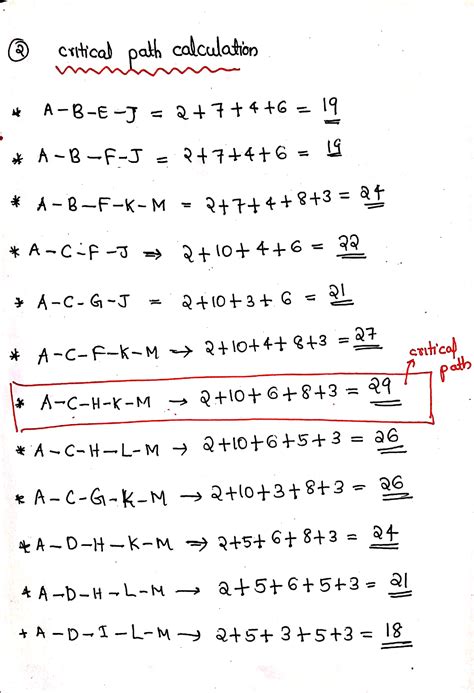 ② critical path calculation
* A-B-E-J = 2+7+4+6 = 19
* A-B-F-J = 2+7+4+6 = 19
* A-B-F-K-M = 2+7+4+8+3 = 24
* A-C-F-J ⇒ 2+10+4+6 = 22
* A-C-G-J = 2+10+3+6 = 21
* A-C-F-K-M → 2+10+4+8+3 = 27
critical path
* A-C-H-K-M → 2+10+6+8+3 = 29
* A-C-H-L-M → 2+10+6+5+3 = 26
* A-C-G-K-M → 2+10+3+8+3 = 26
* A-D-H-K-M ⇒ 2+5+6+8+3 = 24
* A-D-H-L-M → 2+5+6+5+3 = 21
+ A-D-I-L-M → 2+5+3+5+3 = 18